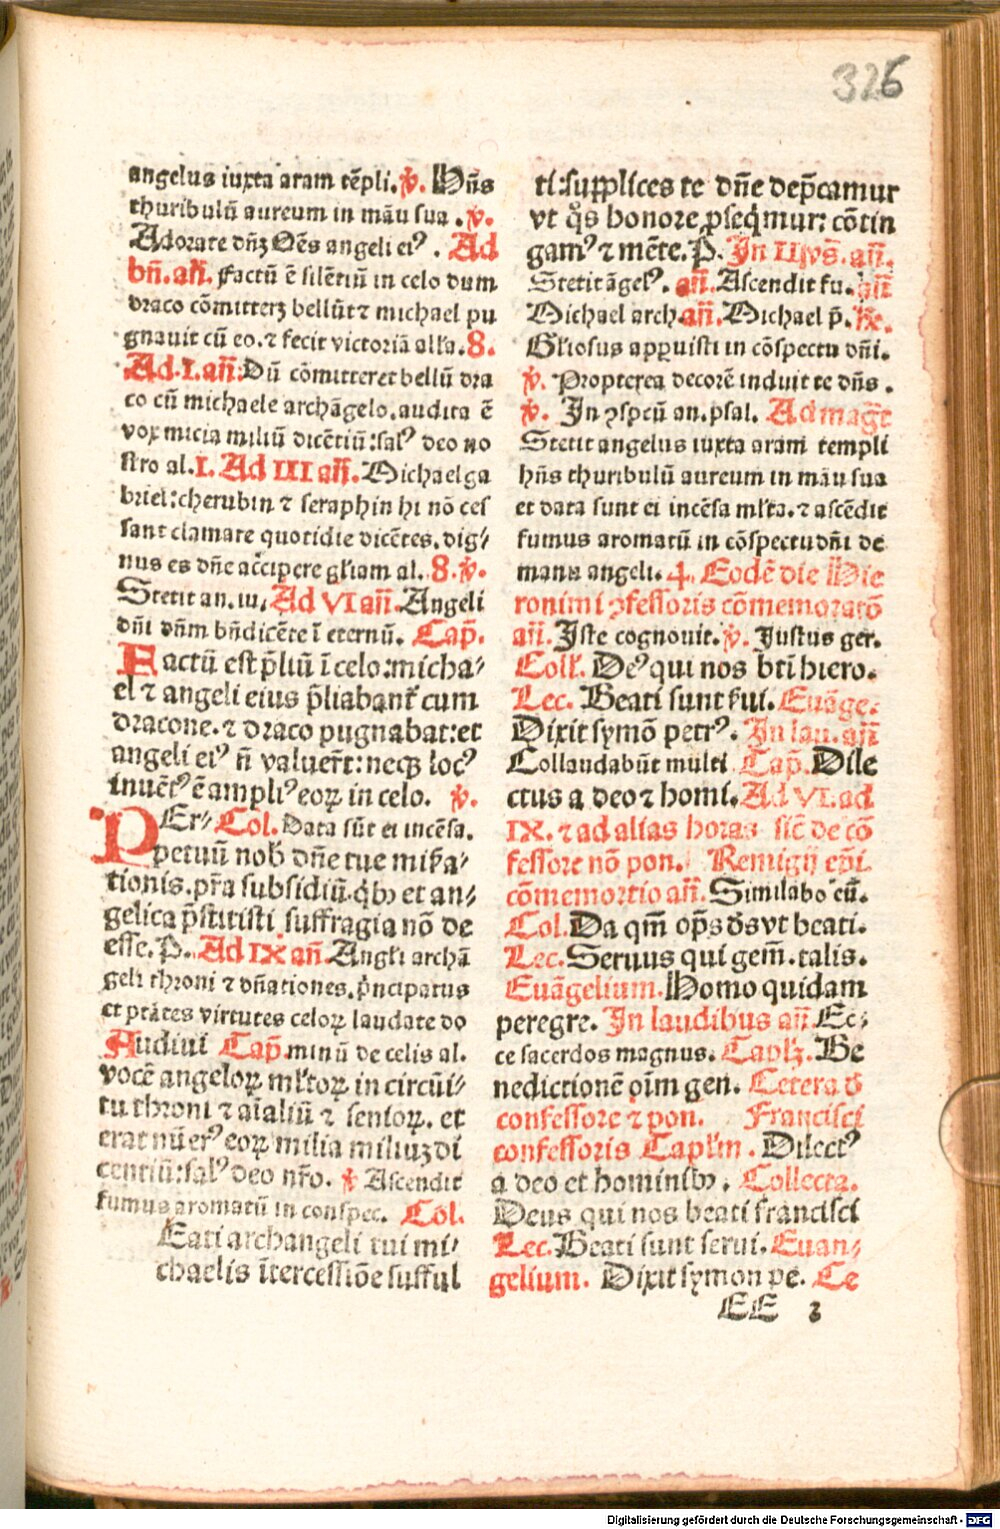 326
angelus iuxta aram tēpli. ꝟ. Hn̄s
thuribulū aureum in māu sua. ꝟ.
Adorate dn̄ꝫ Oēs angeli eiꝰ. Ad
bn̄. an̄. Factū ē silētiū in celo dum
draco cōmitterꝫ bellūt ⁊ michael pu
gnauit cū eo. ⁊ fecit victoriā all'a. 8.
Ad. I. an̄: Dū cōmitteret bellū dra
co cū michaele archāgelo. audita ē
vox micia miliū dicētiū: salꝰ deo no
stro al. I. Ad III an̄. Michael ga
briel: cherubin ⁊ seraphin hi nō ces
sant clamare quotidie dicētes. dig/
nus es dn̄e accipere gl'iam al. 8. ꝟ.
Stetit an. iu. Ad VI an̄. Angeli
dn̄i dn̄m bn̄dicēte ī eternū. Cap̄.
Factū est p̄liū ī celo: micha/
el ⁊ angeli eius p̄liabant᷑ cum
dracone. ⁊ draco pugnabat: et
angeli eiꝰ n̄ valuer̄t: neqꝫ locꝰ
inuētꝰ ē ampliꝰ eoꝝ in celo. ꝟ.
PEr/ Col. Data sūt ei incēsa.
petuū nob̄ dn̄e tue mis̄ra/
tionis. pr̄a subsidiū. qb᷒ et an/
gelica p̄stitisti suffragia nō de
esse. P. Ad IX an̄. Angl'i archā
geli throni ⁊ dn̄ationes. p̄ncipatus
et ptātes virtutes celoꝝ laudate do
Audiui Cap̄. minū de celis al.
vocē angeloꝝ ml'toꝝ in circūi/
tu throni ⁊ aīaliū ⁊ senioꝝ. et
erat nūerꝰ eoꝝ milia miliuꝫ di
centiū: salꝰ deo nr̄o. ꝟ Ascendit
fumus aromatū in conspec. Col.
Eati archangeli tui mi/
chaelis ītercessiōe sufful
ti: supplices te dn̄e dep̄camur
vt qͦs honore ꝓseq̄mur: cōtin
gamꝰ ⁊ mēte. P. In II ꝟs̄. an̄.
Stetit āgelꝰ. an̄. Ascendit fu. an̄
Michael arch. an̄. Michael p̄. ℟.
Gl'iosus apꝑuisti in cōspectu dn̄i.
ꝟ. Propterea decorē induit te dn̄s.
ꝟ. In ꝯspcū an. psal. Ad magn̄t
Stetit angelus iuxta aram templi
hn̄s thuribulū aureum in māu sua
et data sunt ei incēsa ml'ta. ⁊ ascēdit
fumus aromatū in cōspectu dn̄i de
manu angeli. 4. Eodē die Hie
ronimi ꝯfessoris cōmemoratō
an̄. Iste cognouit. ꝟ. Justus ger.
Coll'. Deꝰ qui nos bt̄i hiero.
Lec. Beati sunt s̄ui. Euāge.
Dixit symō petrꝰ. In lau. an̄
Collaudabūt multi. Cap̄. Dile
ctus a deo ⁊ homi. Ad VI. ad
IX. ⁊ ad alias horas sic̄ de cō
fessore nō pon. Remigij ep̄i
cōmemortio an̄. Similabo eū.
Col. Da qm̄ op̄s ds̄ vt beati.
Lec. Seruus qui gem̄. talis.
Euāgelium. Homo quidam
peregre. In laudibus an̄. Ec/
ce sacerdos magnus. Capl'ꝫ. Be
nedictionē oīm gen. Cetera d̄
confessore ⁊ pon. Francisci
confessoris Capl'm. Dilectꝰ
a deo et hominib᷒. Collecta.
Deus qui nos beati francisci
Lec. Beati sunt serui. Euan/
gelium. Dixit symon pe. Ce
EE 3
Digitalisierung gefördert durch die Deutsche Forschungsgemeinschaft - DFG